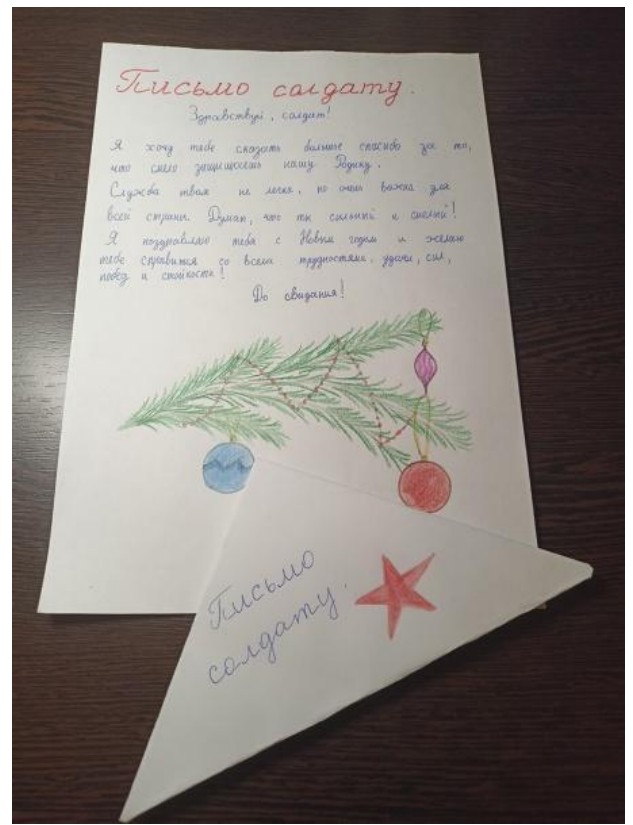 Письмо солдату.
Здравствуй, солдат!
Я хочу тебе сказать большое спасибо за то,
что смело защищаешь нашу Родину.
Служба твоя не легка, но очень важна для
всей страны. Думаю, что ты сильный и смелый!
Я поздравляю тебя с Новым годом и желаю
тебе справится со всеми трудностями, удачи, сил,
побед и стойкости!
До свидания!
Письмо
солдату.